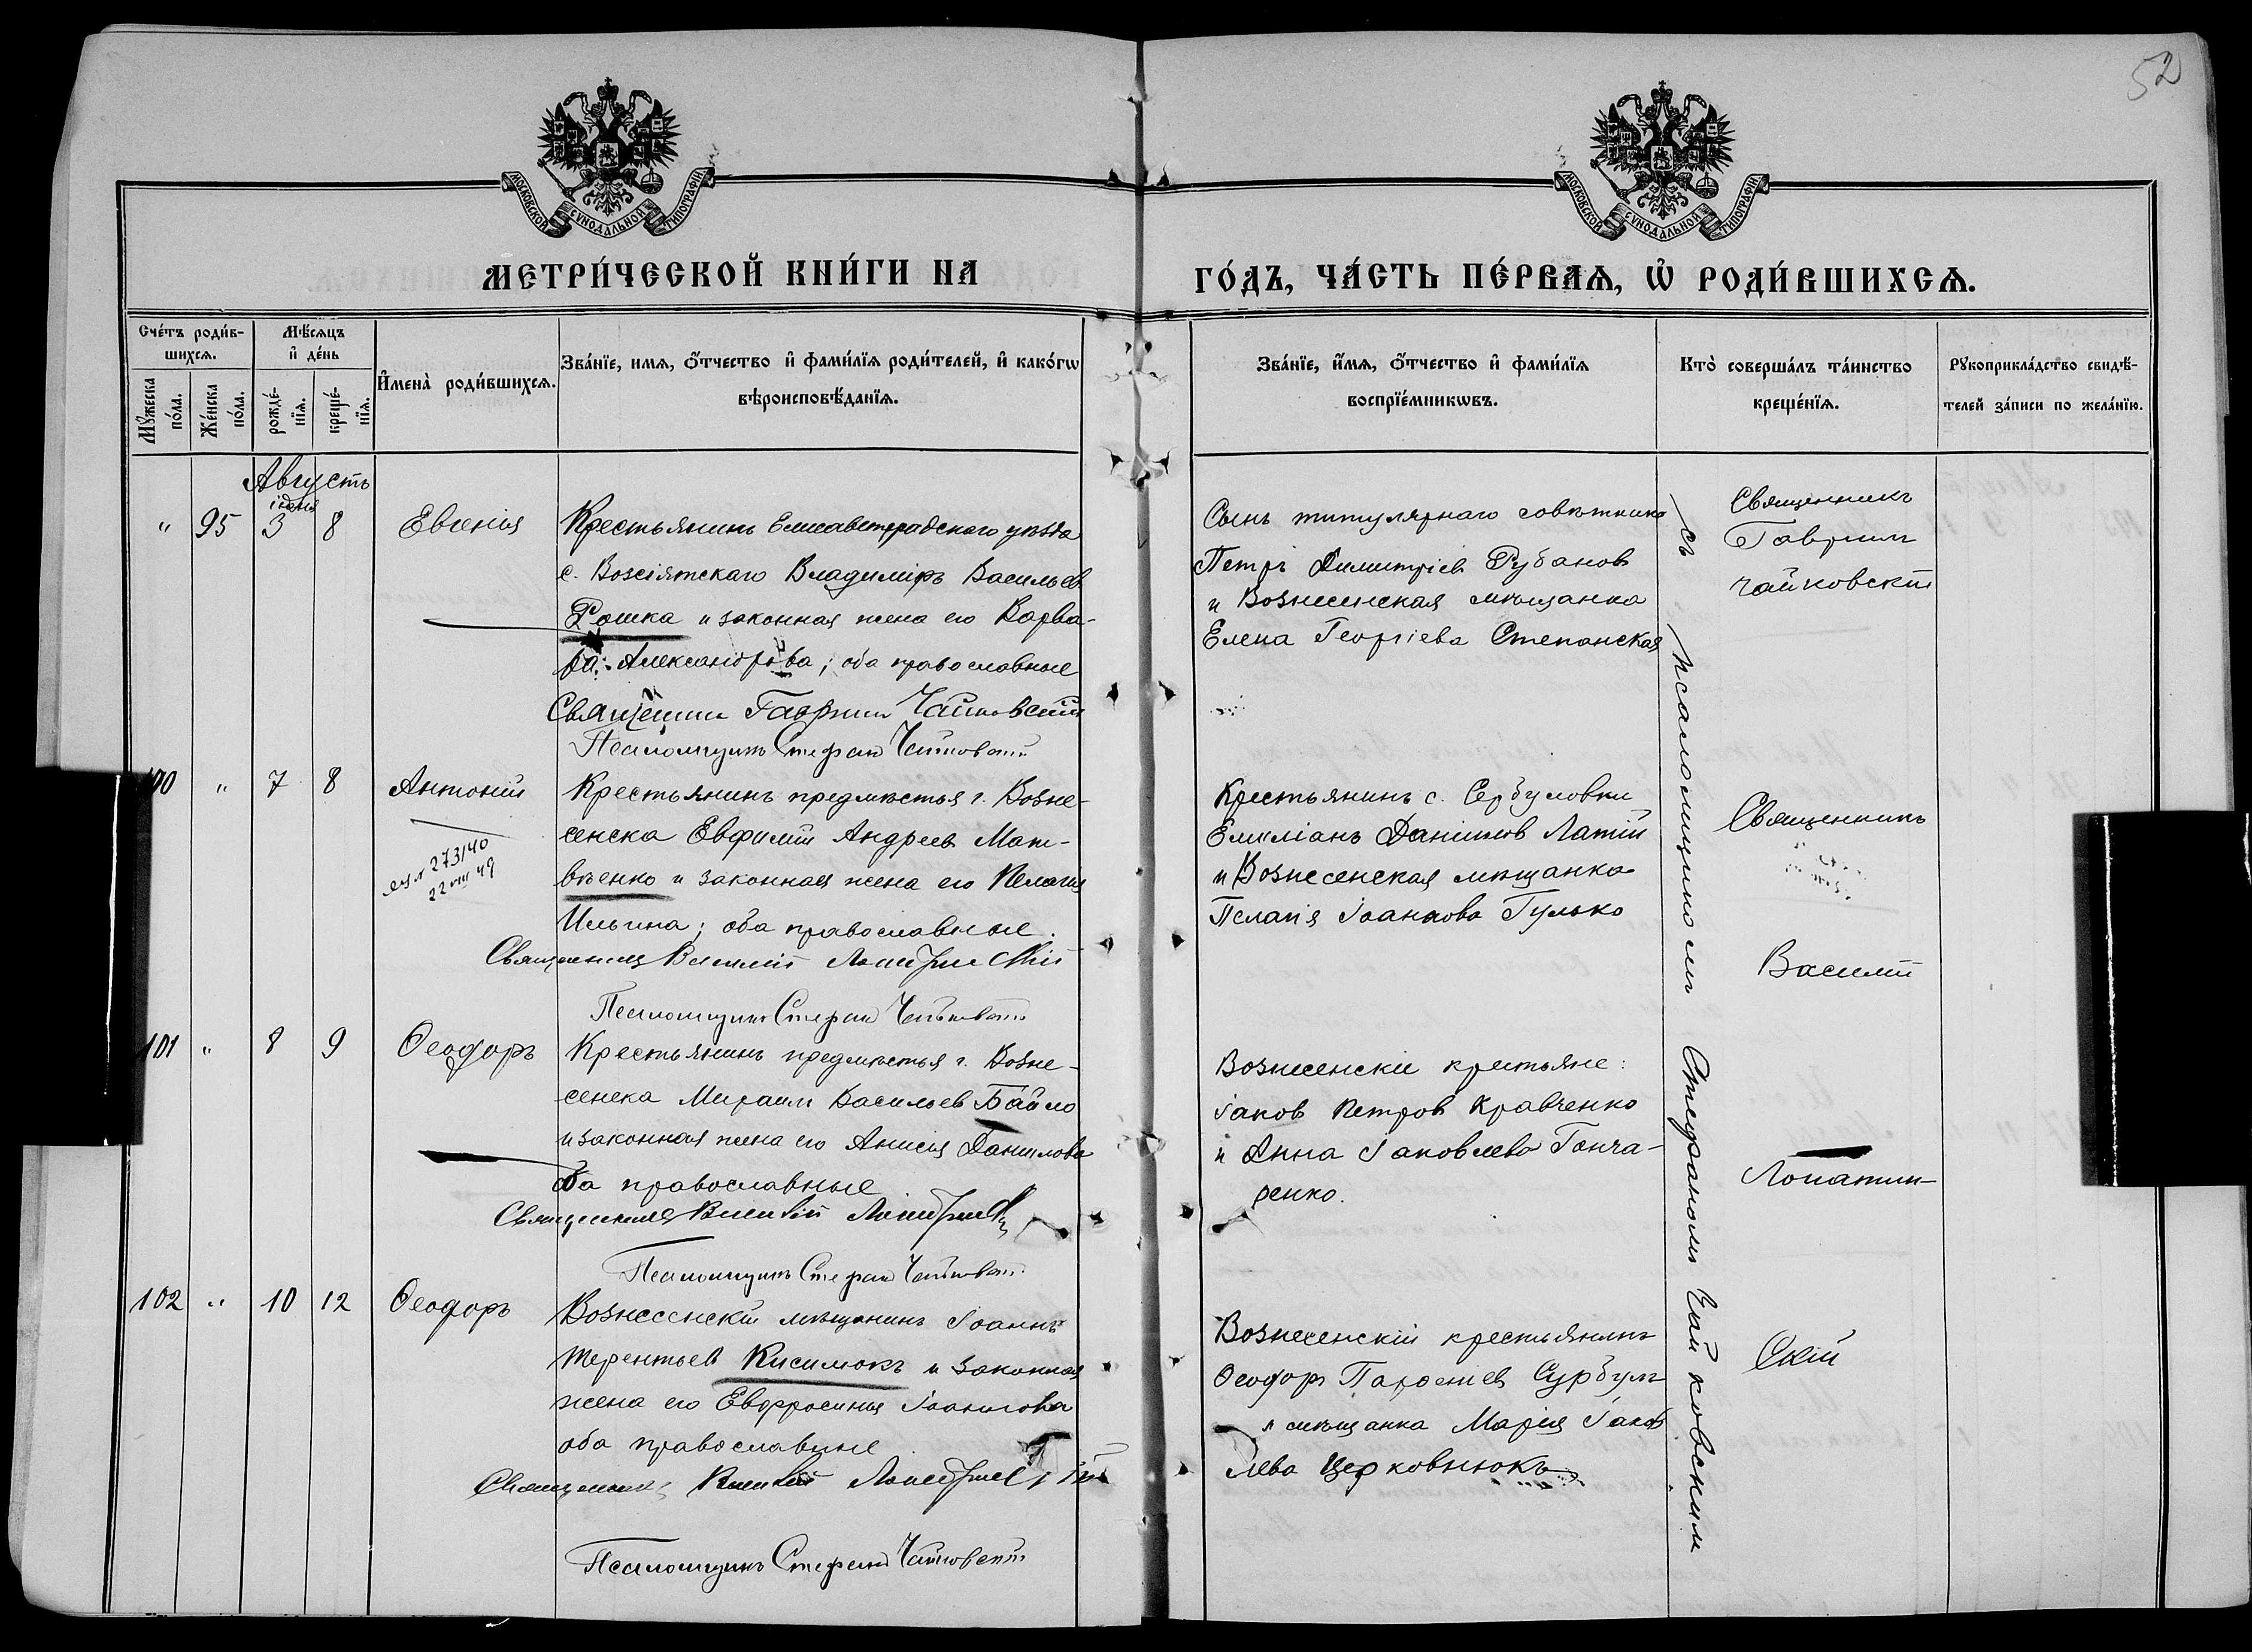 52
МОСКОВСКОЙ СѴНОДАЛЬНОЙ ТИПОГРАФІИ.
МОСКОВСКОЙ СѴНОДАЛЬНОЙ ТИПОГРАФІИ.
МЕТРИ́ЧЕСКОЙ КНИ́ГИ НА
ГО́ДЪ, ЧА́СТЬ ПЕ́РВАѦ, Ѡ҆ РОДИ́ВШИХСѦ.
Сче́тъ роди́в-
шихсѧ.
Мꙋжеска по́ла.
Же́нска по́ла.
Мѣ́сѧцъ
и҆ де́нь
рожде́-
нїѧ.
креще́-
нїѧ.
И҆мена̀ роди́вшихсѧ.
Зва́нїе, имѧ, ѻ҆́тчество и҆ фами́лїѧ роди́телей, и҆ како́гѡ
вѣроисповѣ́данїѧ.
Зва́нїе, и҆́мѧ, ѻ҆́тчество и҆ фами́лїѧ
воспрїе́мникѡвъ.
Кто̀ соверша́лъ та́инство
креще́нїѧ.
Рꙋкоприкла́дство свидѣ́-
телей за́писи по жела́нїю.
Августъ
" 95 3 8 Евгенія
Крестьянинъ Елисаветградскаго уѣзда
с. Возсіятскаго Владиміръ Васильев
Рошка и законная жена его Варва-
ра Александрова; оба православные
Священник Гавриил Чайковский
Псаломщикъ Стефан Чайковский
Сынъ титулярнаго совѣтника
Петръ Димитріев Рубанов
и Вознесенская мѣщанка
Елена Георгіева Степанская
Священникъ
Гавриилъ
Чайковскій
съ псаломщикомъ Стефаномъ Чайковскимъ
100 " 7 8 Антоній
273140
22 VIII 49
Крестьянинъ предмѣстья г. Возне-
сенска Евфимій Андреев Мат-
вѣенко и законная жена его Пелагія
Ильина; оба православные.
Священник Василій Лопатинскій
Псаломщикъ Стефан Чайковский
Крестьянинъ с. Сербуловки
Емиліанъ Данилов Латій
и Вознесенская мѣщанка
Пелагія Іоаннова Гулько
Священникъ
Василій
101 " 8 9 Ѳеодоръ
Крестьянинъ предмѣстья г. Возне-
сенска Михаил Васильев Байло
и законная жена его Анисія Данилова
оба православные
Священник Василій Лопатинскій
Псаломщикъ Стефан Чайковский
Вознесенскіе крестьяне:
Іаков Петров Кравченко
и Анна Іаковлева Гонча-
ренко.
Лопатин-
102 " 10 12 Ѳеодоръ
Вознесенскій мѣщанинъ Іоаннъ
Терентьев Кисимокъ и законная
жена его Евфросинія Іоаннова
оба православные
Священник Василій Лопатинскій
Псаломщикъ Стефан Чайковскій
Вознесенскій крестьянинъ
Ѳеодоръ Парѳеніев Сурбул
и мѣщанка Марія Іаков
лева Церковнюкъ
скій